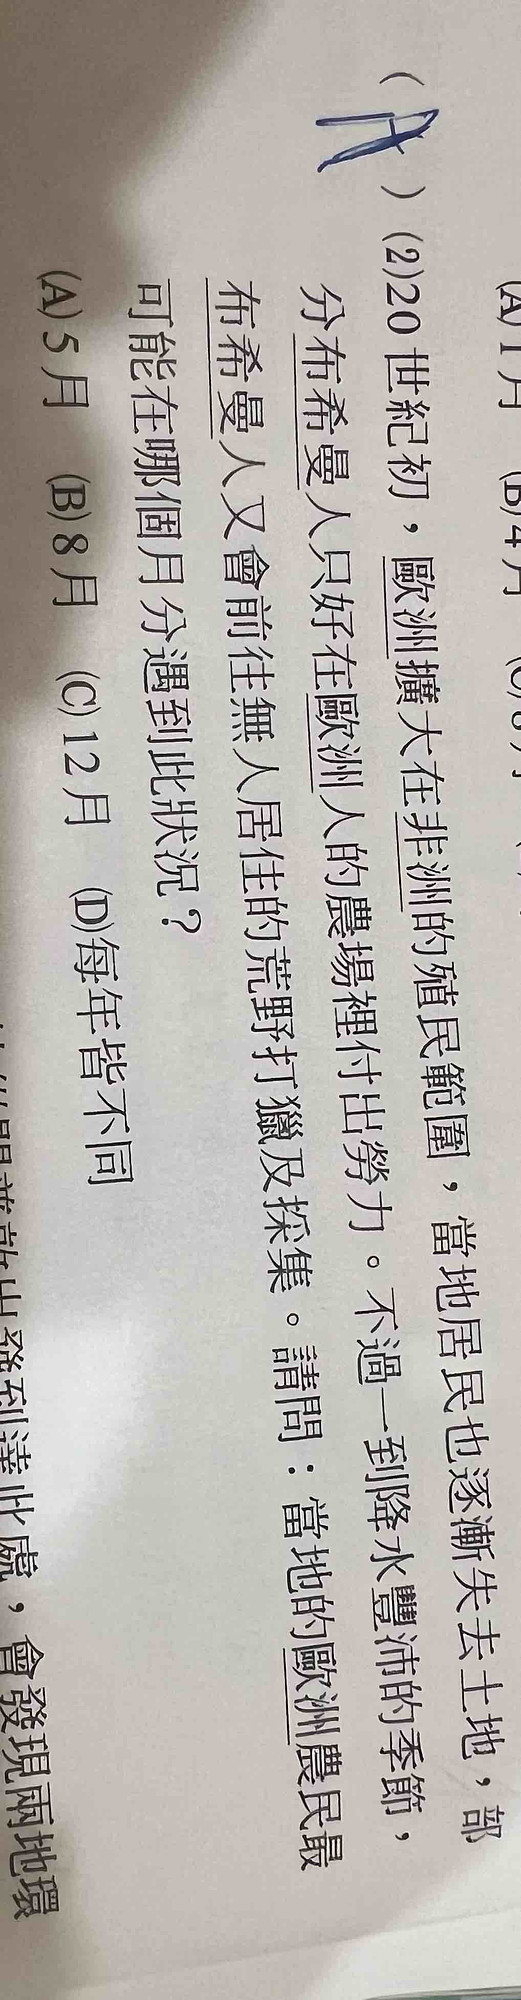 (A)1月 (B)4月
( A ) (2)20 世紀初，歐洲擴大在非洲的殖民範圍，當地居民也逐漸失去土地，部
分布希曼人只好在歐洲人的農場裡付出勞力。不過一到降水豐沛的季節，
布希曼人又會前往無人居住的荒野打獵及採集。請問：當地的歐洲農民最
可能在哪個月分遇到此狀況？
(A)5月 (B)8月 (C)12月 (D)每年皆不同
出發到達此處，會發現兩地環